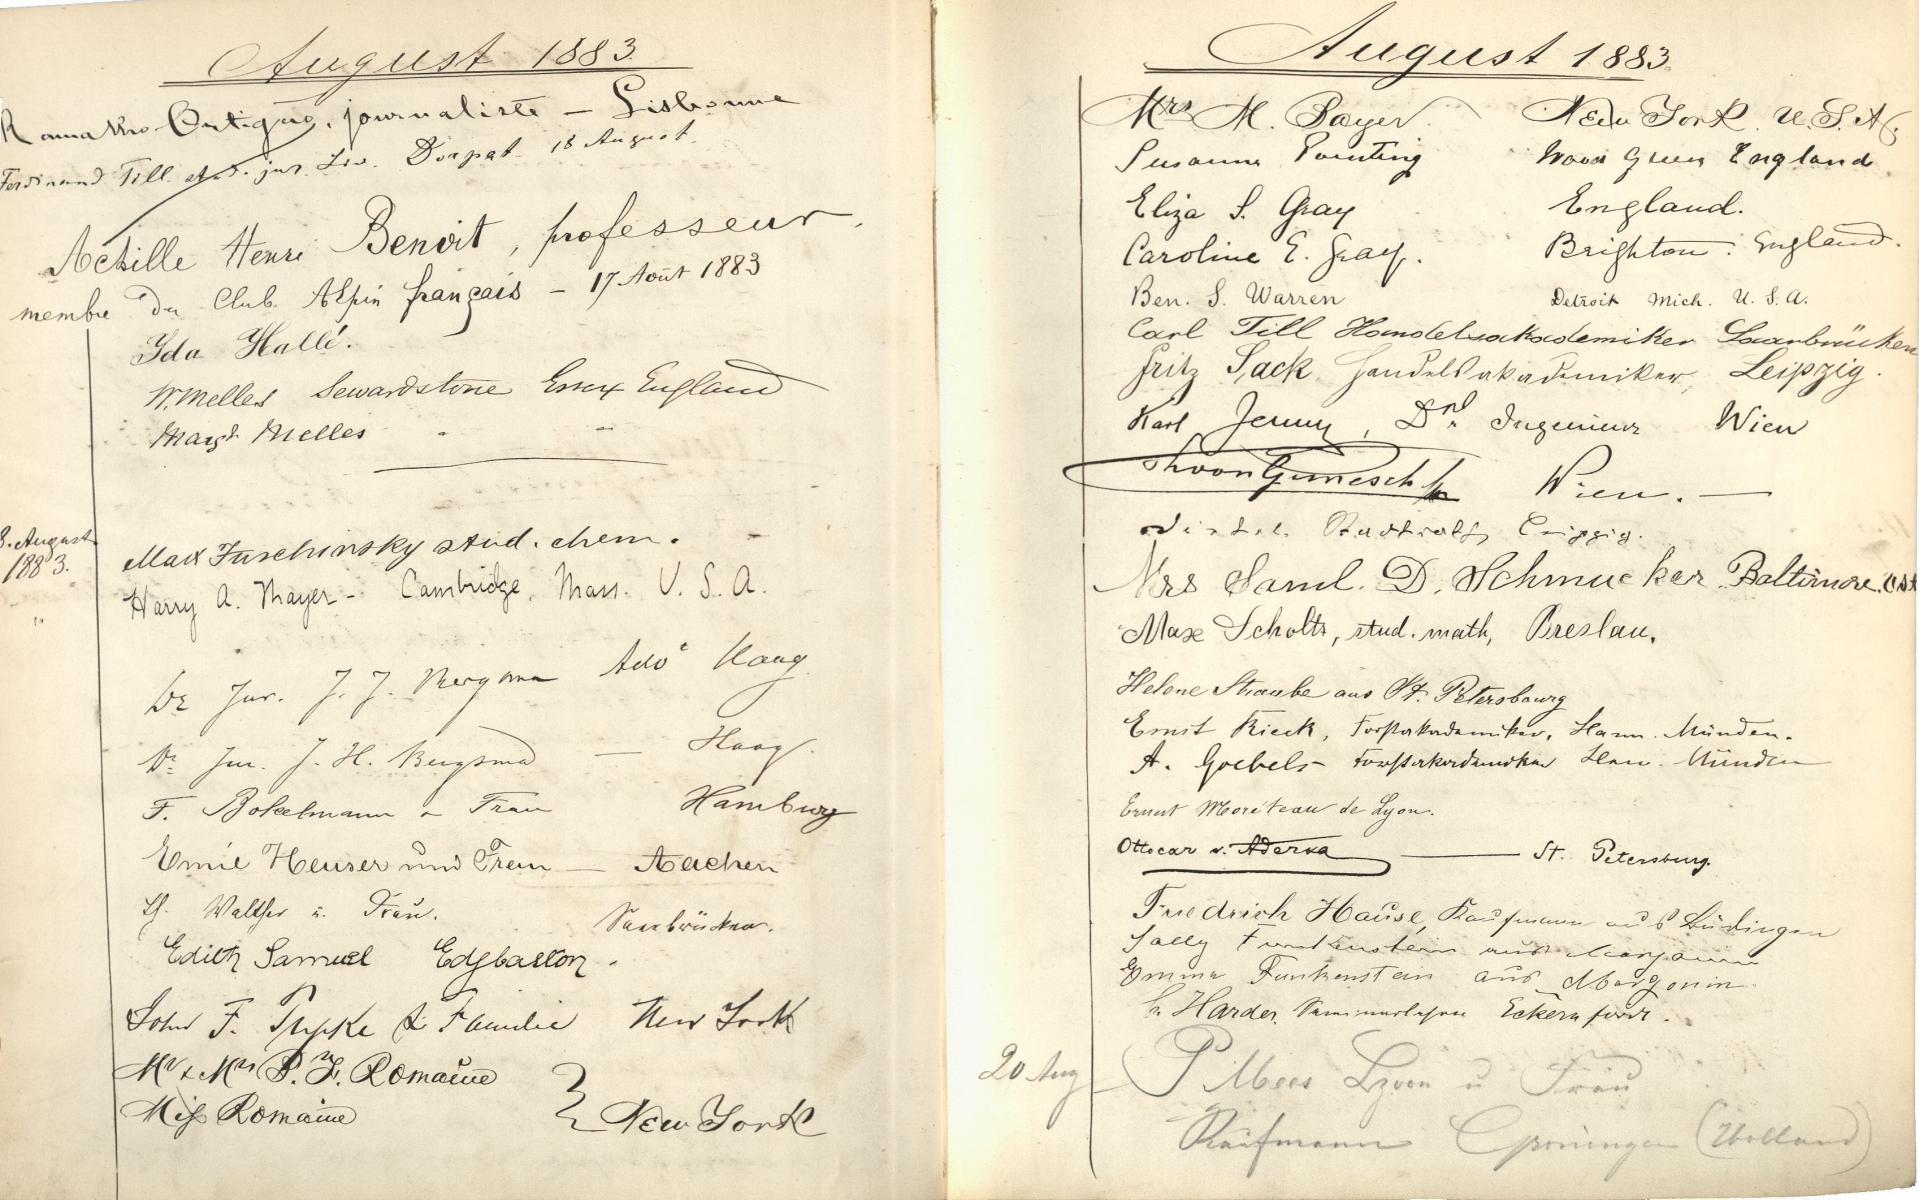 August 1883.
Ramalho Ortigão, journaliste – Lisbonne
Ferdinand Till. stud. jur. Liv. Dorpat. 18 August.
Achille Henri Benoit, professeur.
membre du Club Alpin français – 17 Août 1883
Ida Hallé.
W. Melles Sewardstone Essex England
Margt Melles " "
8. August
1883.
Max Juschinsky stud. chem.
Harry A. Mayer – Cambridge, Mass. U. S. A.
"
Dr Jur. J. J. Bergsma Advt Haag.
Dr Jur. J. H. Bergsma — Haag.
F. Bokelmann u Frau Hamburg
Emil Heuser und Frau — Aachen
Walther u. Frau. Saarbrücken.
Edith Samuel Edgbaston.
John F. Typke & Familie New York
Mr & Mrs P. F. Romaine
Miss Romaine } New York
August 1883.
Mrs M. Bayer. New York. U. S. A.
Susanna Pointing Wood Green England
Eliza S. Gray England.
Caroline E. Gray. Brighton. England.
Ben. S. Warren Detroit Mich. U. S. A.
Carl Till Handelsakademiker Saarbrücken
Fritz Sack Handelsakademiker, Leipzig.
Karl Jenny, Dnd. Ingenieur Wien
Wien. —
Leipzig.
Mrs Saml. D. Schmucker. Baltimore. USA
Max Scholtz, stud. math, Breslau.
Helene Straube aus St. Petersbourg
Ernst Rieck, Forstakademiker, Hann. Münden.
A. Goebels – Forstakademiker Hann. Münden
Ernest Moriteau de Lyon.
Ottocar v. Aderka — St. Petersburg.
Friedrich Hause, Kaufmann aus Büdingen
Sally Funkenstein aus Margonin
Emma Funkenstein aus Margonin.
Harder, Seminarlehrer Eckernförde.
20 Aug
P Mees u Frau
Kaufmann Groningen (Holland)